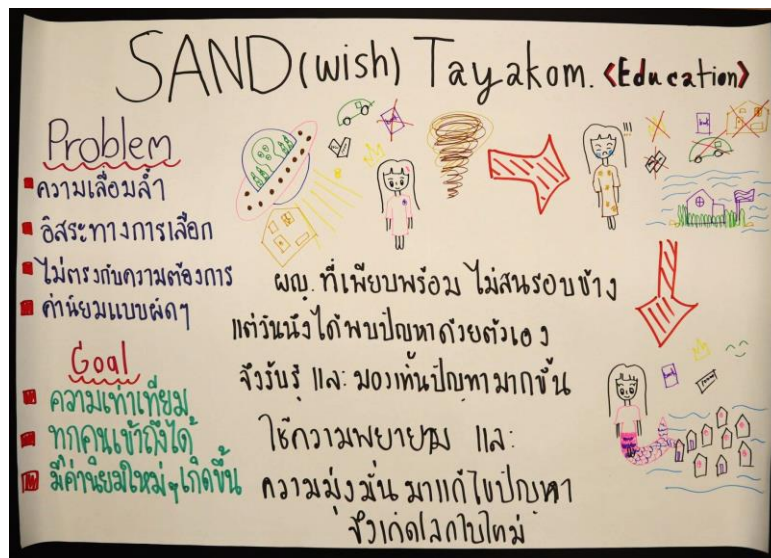 SAND(wish) Tayakom. <Education>
Problem
ความเลื่อมล้ำ
อิสระทางการเลือก
ไม่ตรงกับความต้องการ
ค่านิยมแบบผิดๆ
Goal
ความเท่าเทียม
ทุกคนเข้าถึงได้
มีค่านิยมใหม่ๆเกิดขึ้น
ผญ. ที่เพียบพร้อม ไม่สนรอบข้าง
แต่วันนึงได้พบปัญหาด้วยตัวเอง
จึงรับรู้ และ มองเห็นปัญหามากขึ้น
ใช้ความพยายาม และ
ความมุ่งมั่น มาแก้ไขปัญหา
จึงเกิดโลกใบใหม่